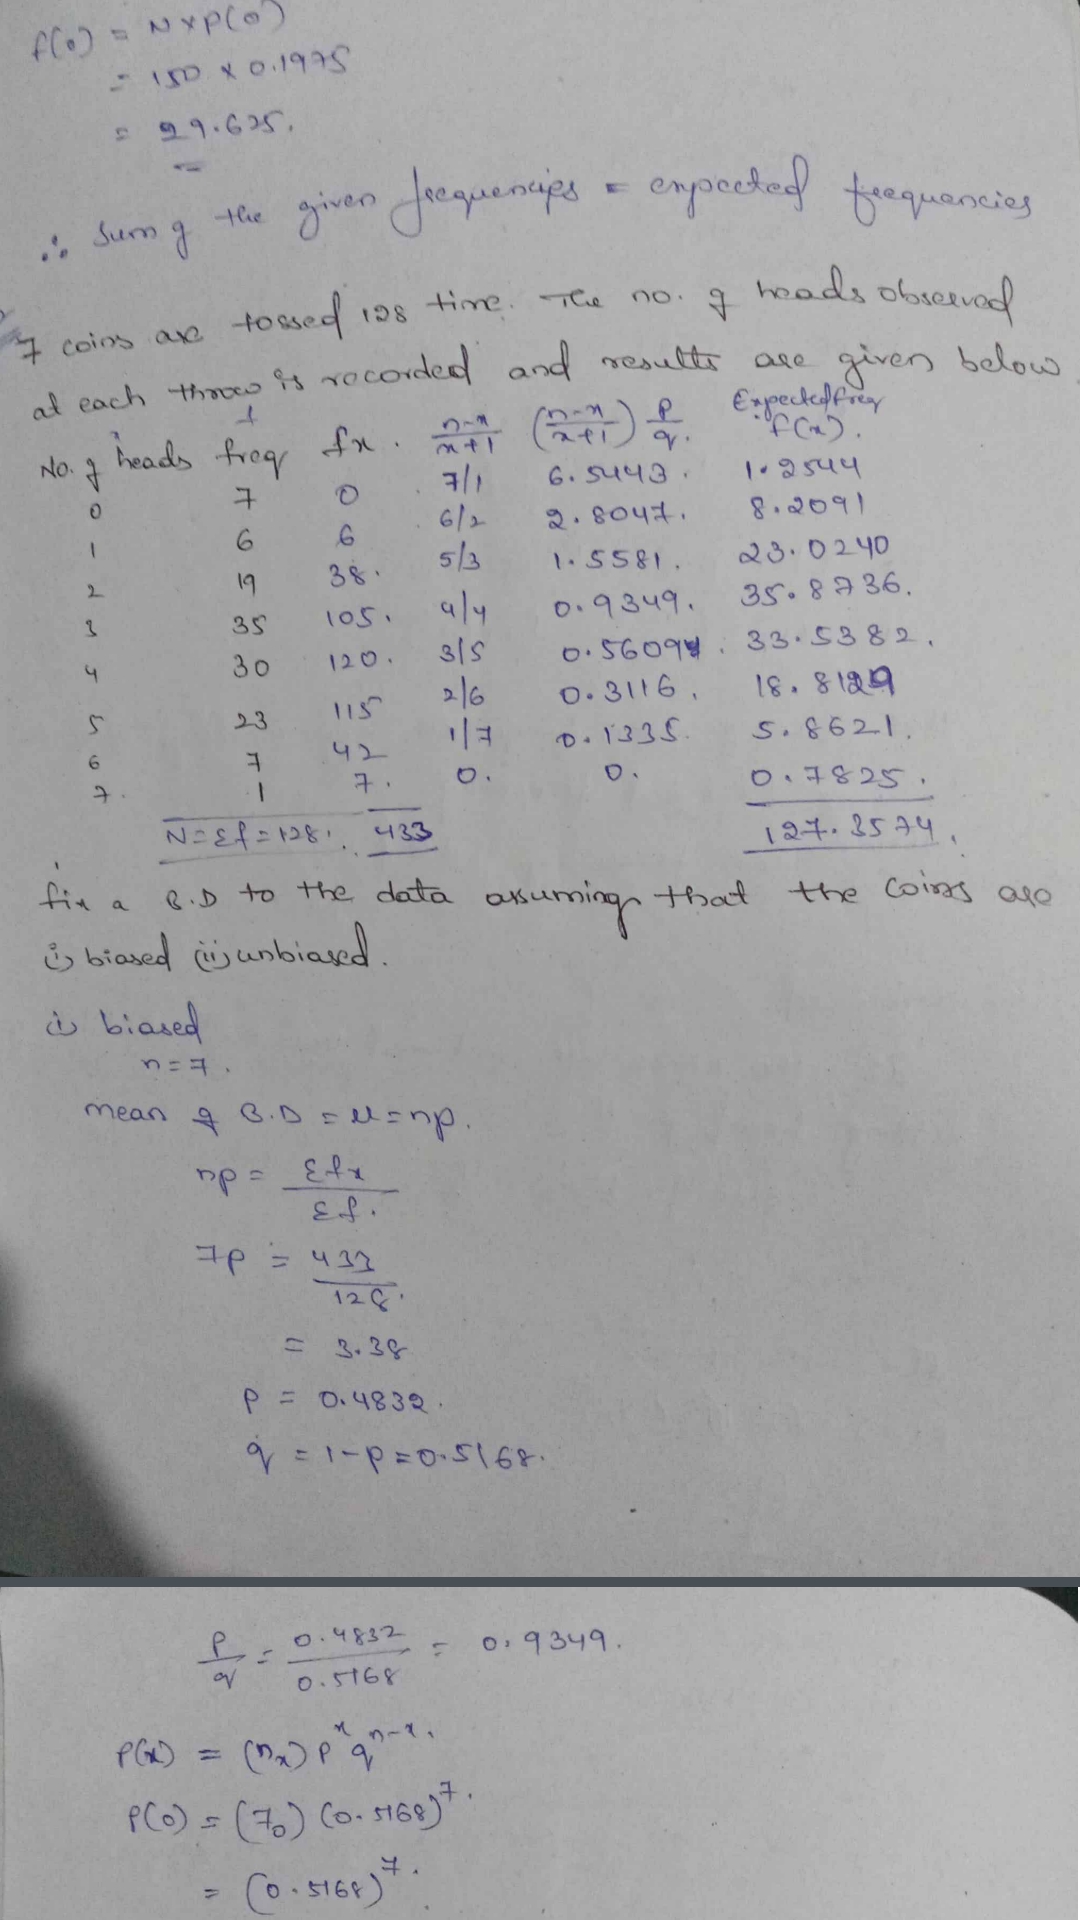 f(0) = N×P(0)
= 150 × 0.1975
= 29.625.
∴ Sum of the given frequencies = expected frequencies
7 coins are tossed 128 time. The no. of heads observed
at each throw is recorded and results are given below
No. of heads f freq fx. n-x/x+1 (n-x/x+1) p/q. Expected freq f(x).
0 7 0 7/1 6.5443. 1.2544
1 6 6 6/2 2.8047. 8.2091
2 19 38. 5/3 1.5581. 23.0240
3 35 105. 4/4 0.9349. 35.8736.
4 30 120. 3/5 0.5609 33.5382.
5 23 115 2/6 0.3116. 18.8129
6 7 42 1/7 0.1335. 5.8621.
7. 1 7. 0. 0. 0.7825.
N=Σf=128. 433 127.3574.
fix a B.D to the data assuming that the coins are
(i) biased (ii) unbiased.
(i) biased
n=7.
mean of B.D = μ = np.
np = Σfx/Σf.
7p = 433/128.
= 3.38
p = 0.4832.
q = 1-p = 0.5168.
p/q = 0.4832/0.5168 = 0.9349.
P(x) = (nₓ) pˣ qⁿ⁻ˣ.
P(0) = (7₀) (0.5168)⁷.
= (0.5168)⁷.